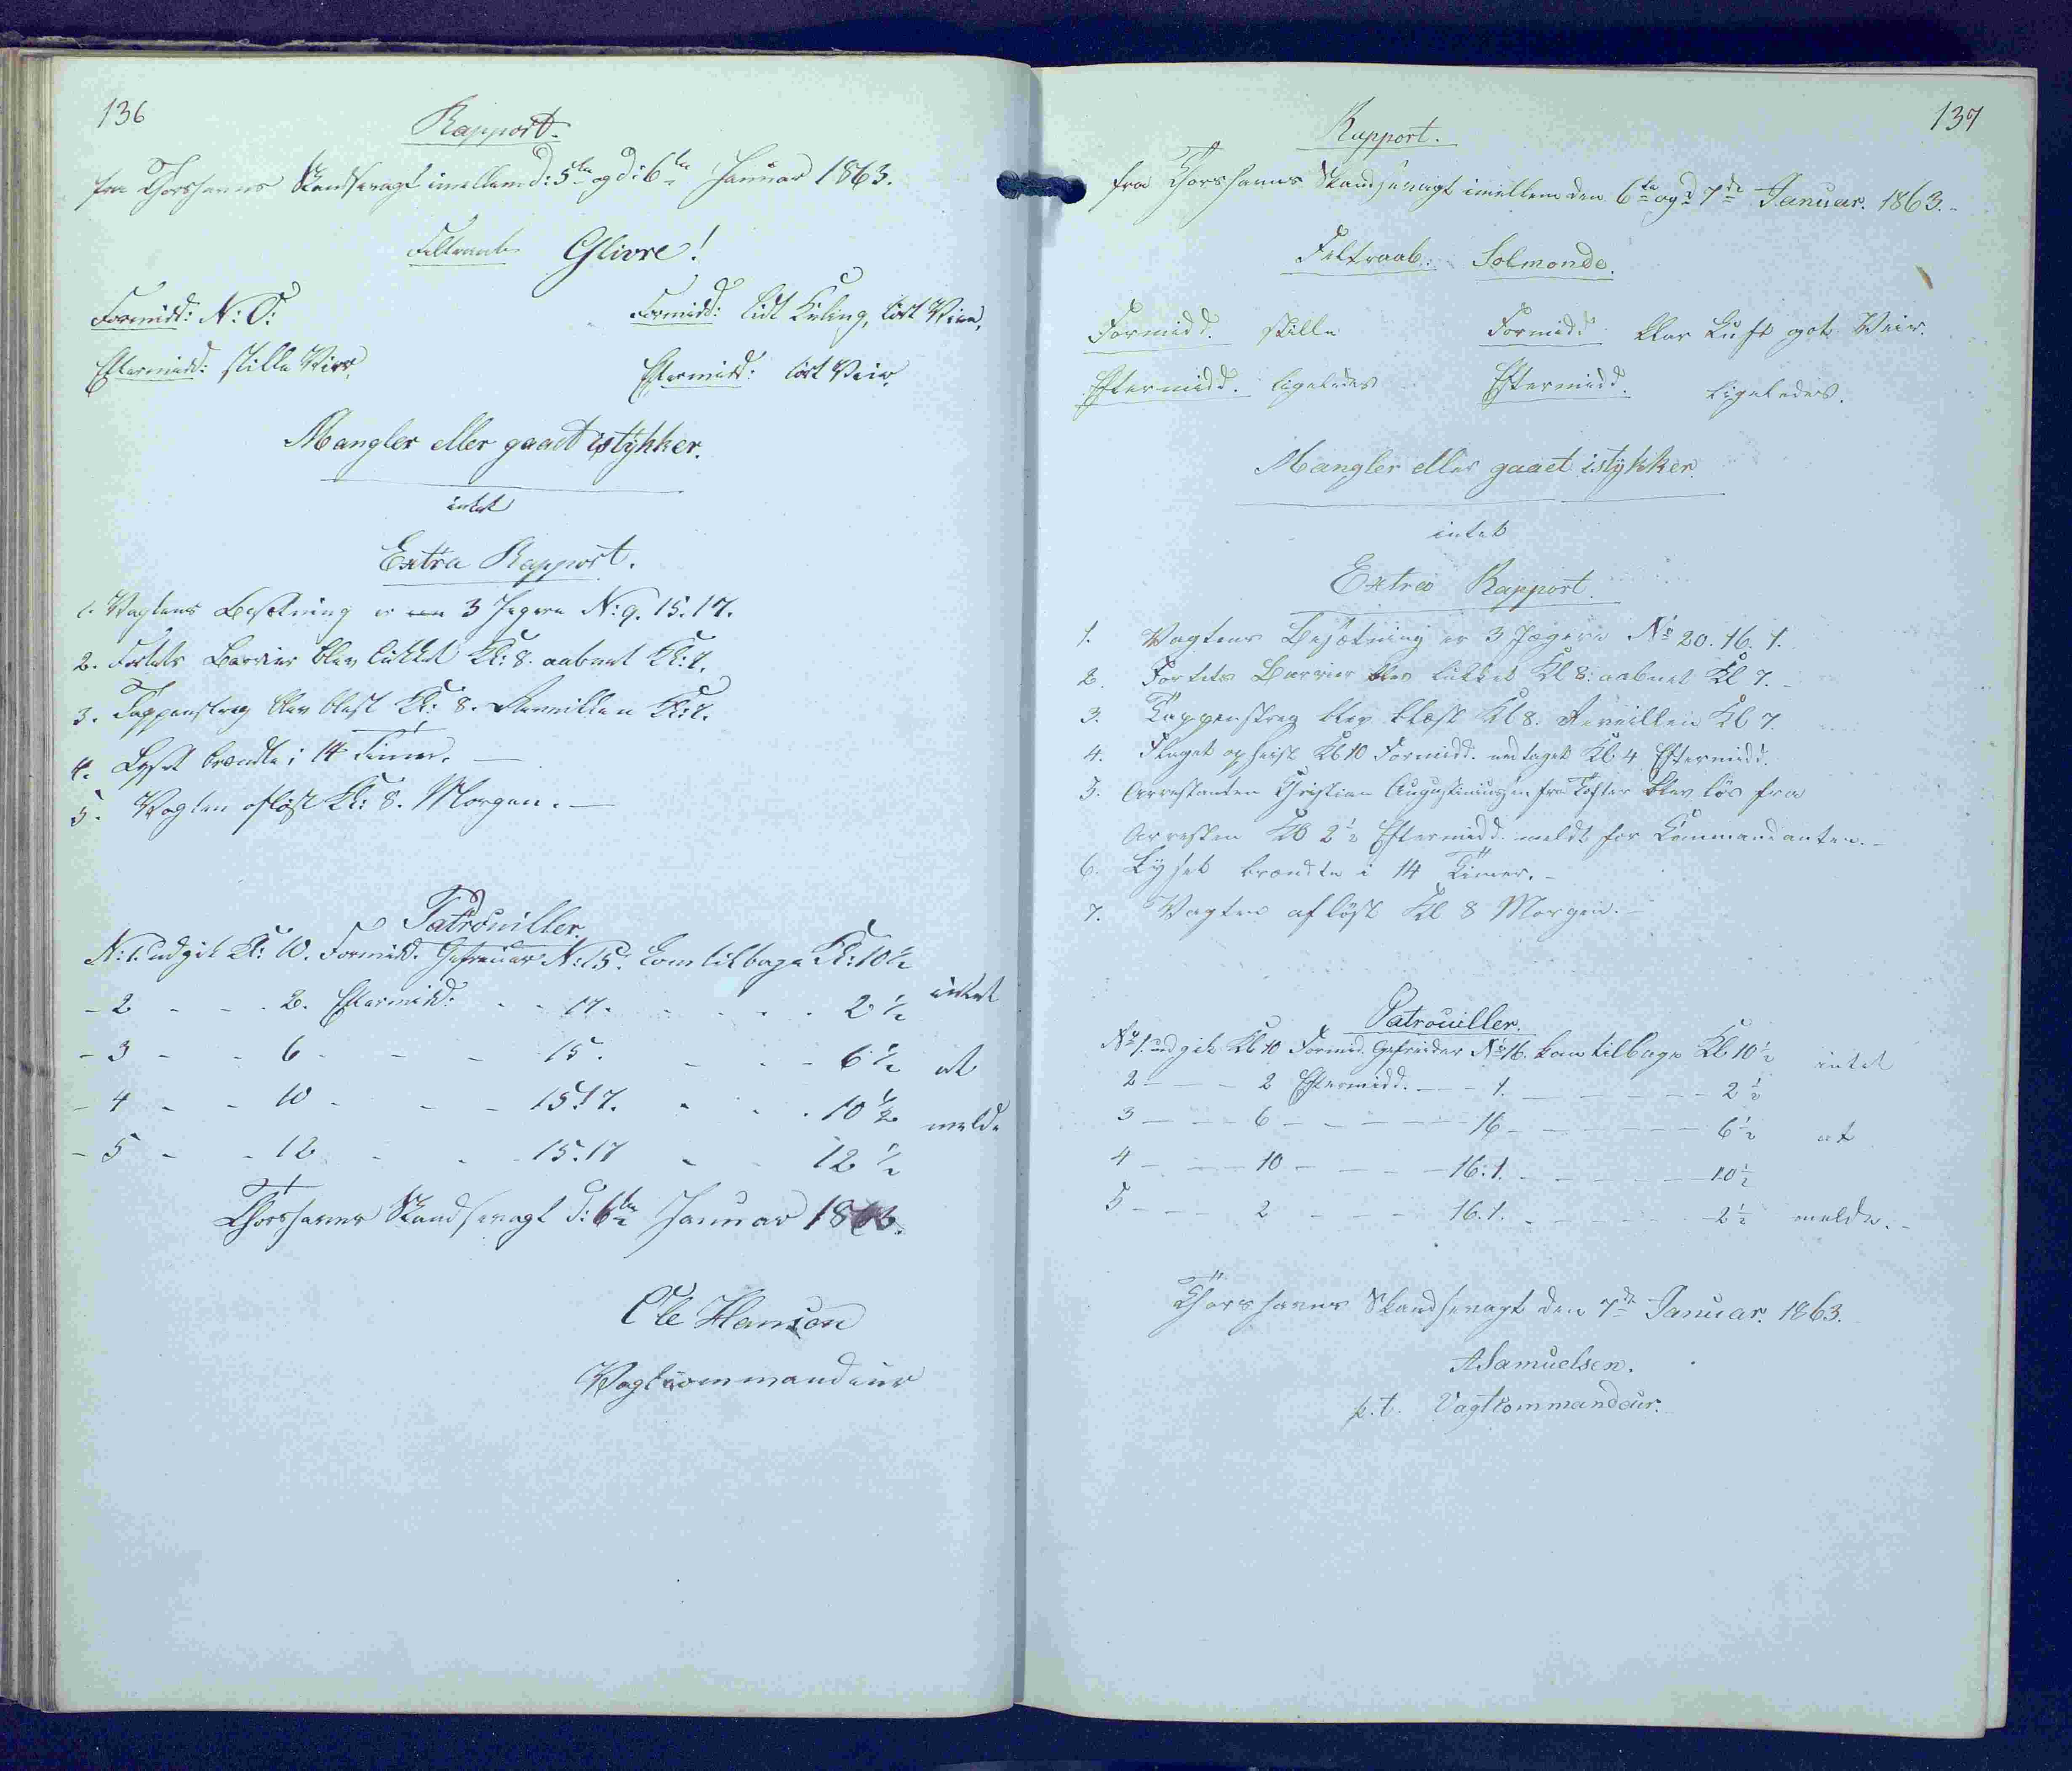 136
Rapport.
fra Thorshavns Skandsevagt imellem d: 5te og d: 6te Januar 1863.
Feltraab Glivre!
Formidd: N: O: Formidd: lidt Kuling, tørt Veir,
Eftermidd: stille Veir, Eftermidd: tørt Veir,
Mangler eller gaaet istykker.
intet
Extra Rapport.
1. Vagtens Besætning er 3 Jægere N: 9. 15. 17.
2. Fortets Barrier blev lukket Kl: 8. aabnet Kl: 7.
3. Tappenstreg blev blæst Kl: 8. Reveillen Kl: 7.
4. Lyset brændte i 14 Timer. —
5. Vagten afløst Kl: 8. Morgen. —
Patrouiller.
N: 1. udgik Kl: 10. Formidd. Gefreider N: 15. kom tilbage Kl: 10 ½
- 2 - - - 2. Eftermidd: - - 17. - - - - 2 ½ intet
- 3 - - 6 - - - 15. - - - 6 ½ at
- 4 - - 10 - - - 15.17. - - - 10 ½ melde
- 5 - - 12 - - - 15.17 - - 12 ½
Thorshavns Skandsevagt d: 6te Januar 1863.
Ole Hansen
Vagtcommandeur
137
Rapport.
fra Thorshavns Skandsevagt imellem den 6te og d 7de Januar. 1863. -
Feltraab: Solmonde.
Formidd. stille Formidd. klar Luft got Veir.
Eftermidd. ligeledes Eftermidd. ligeledes.
Mangler eller gaaet istykker
intet
Extra Rapport.
1. Vagtens Besætning er 3 Jægere No 20. 16. 1.
2. Fortets Barrier blev lukket Kl 8: aabnet Kl 7. -
3. Tappenstreg blev blæst Kl 8. Reveillen Kl 7.
4. Flaget opheist Kl 10 Formidd. nedtaget Kl 4 Eftermidd.
5. Arrestanten Christian Augustiniussen fra Tofter blev løs fra
Arresten Kl 2 ½ Eftermidd. meldt for Kommandanten. -
6. Lyset brændte i 14 Timer. -
7. Vagten afløst Kl 8 Morgen. -
Patrouiller.
No 1. udgik Kl 10 Formid. Gefreider No 16. kom tilbage Kl 10 ½ intet
2 — — — 2 Eftermidd. — - 1. — — — — 2 ½
3 — — — 6 — — — — 16 — — — — 6 ½ at
4 — — — 10 — — — — 16.1. - - - — 10 ½
5 — - - 2 - - - 16.1. - - - — 2 ½ melde. -
Thorshavns Skandsevagt den 7de Januar. 1863.
A Samuelsen.
p.t. Vagtkommandeur.